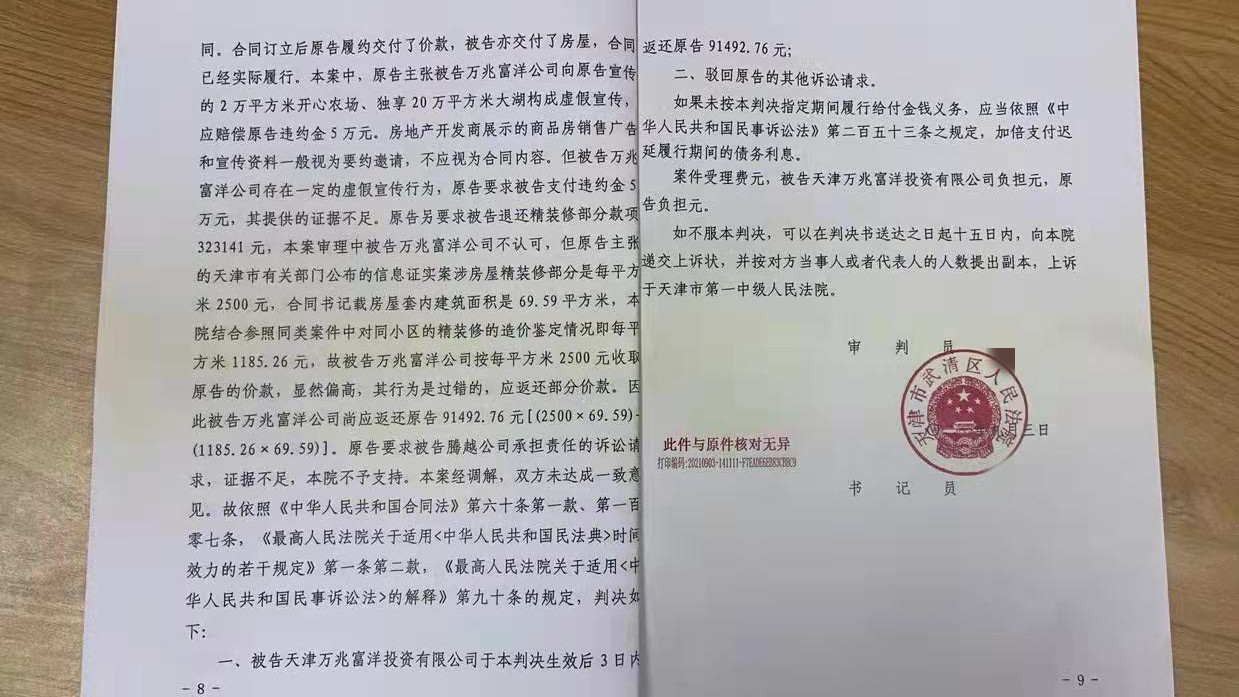 同。合同订立后原告履约交付了价款，被告亦交付了房屋，合同
已经实际履行。本案中，原告主张被告万兆富洋公司向原告宣传
的 2 万平方米开心农场、独享 20 万平方米大湖构成虚假宣传，
应赔偿原告违约金 5 万元。房地产开发商展示的商品房销售广告
和宣传资料一般视为要约邀请，不应视为合同内容。但被告万兆
富洋公司存在一定的虚假宣传行为，原告要求被告支付违约金 5
万元，其提供的证据不足。原告另要求被告退还精装修部分款项
323141 元，本案审理中被告万兆富洋公司不认可，但原告主张
的天津市有关部门公布的信息证实案涉房屋精装修部分是每平方
米 2500 元，合同书记载房屋套内建筑面积是 69.59 平方米，本
院结合参照同类案件中对同小区的精装修的造价鉴定情况即每平
方米 1185.26 元，故被告万兆富洋公司按每平方米 2500 元收取
原告的价款，显然偏高，其行为是过错的，应返还部分价款。因
此被告万兆富洋公司尚应返还原告 91492.76 元[(2500×69.59)-
(1185.26×69.59)]。原告要求被告腾越公司承担责任的诉讼请
求，证据不足，本院不予支持。本案经调解，双方未达成一致意
见。故依照《中华人民共和国合同法》第六十条第一款、第一百
零七条，《最高人民法院关于适用<中华人民共和国民法典>时间
效力的若干规定》第一条第二款，《最高人民法院关于适用<中
华人民共和国民事诉讼法>的解释》第九十条的规定，判决如
下：
一、被告天津万兆富洋投资有限公司于本判决生效后 3 日内
- 8 -
返还原告 91492.76 元；
二、驳回原告的其他诉讼请求。
如果未按本判决指定期间履行给付金钱义务，应当依照《中
华人民共和国民事诉讼法》第二百五十三条之规定，加倍支付迟
延履行期间的债务利息。
案件受理费元，被告天津万兆富洋投资有限公司负担元，原
告负担元。
如不服本判决，可以在判决书送达之日起十五日内，向本院
递交上诉状，并按对方当事人或者代表人的人数提出副本，上诉
于天津市第一中级人民法院。
审 判 员
天津市武清区人民法院
三日
此件与原件核对无异
打印编码:20210903-141111-F7EADE6EB83CBBC9
书 记 员
- 9 -